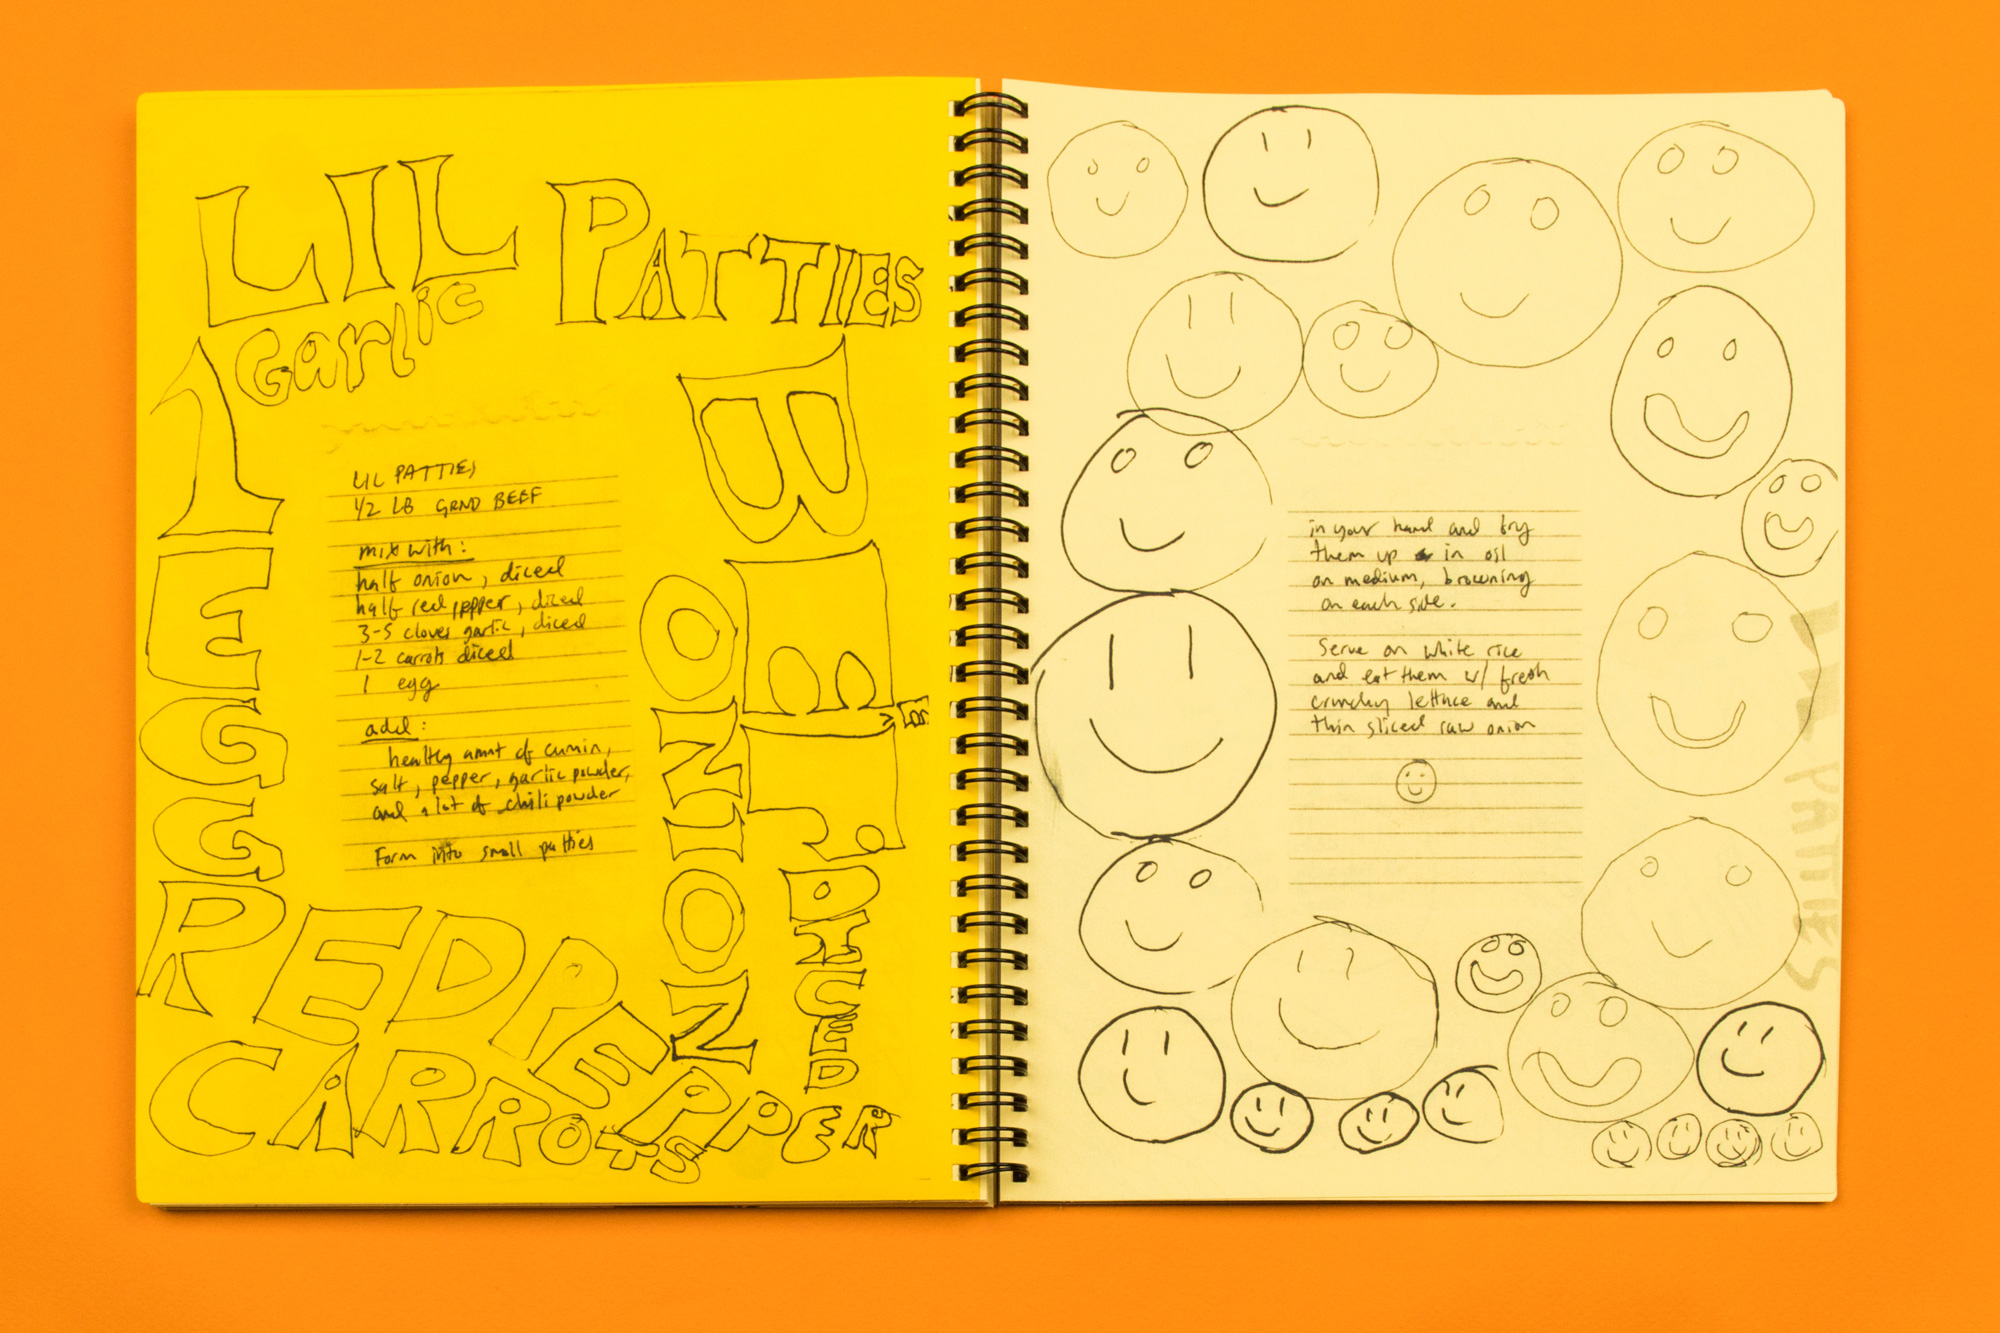 LIL PATTIES
Garlic
1 EGG
BEEF
DICED
ONION
RED PEPPER
CARROTS
LIL PATTIES
1/2 LB GRND BEEF
mix with:
half onion, diced
half red pepper, diced
3-5 cloves garlic, diced
1-2 carrots diced
1 egg
add:
healthy amnt of cumin,
salt, pepper, garlic powder,
and a lot of chili powder
Form into small patties
in your hand and fry
them up in oil
on medium, browning
on each side.
Serve on white rice
and eat them w/ fresh
crunchy lettuce and
thin sliced raw onion
LIL PATTIES